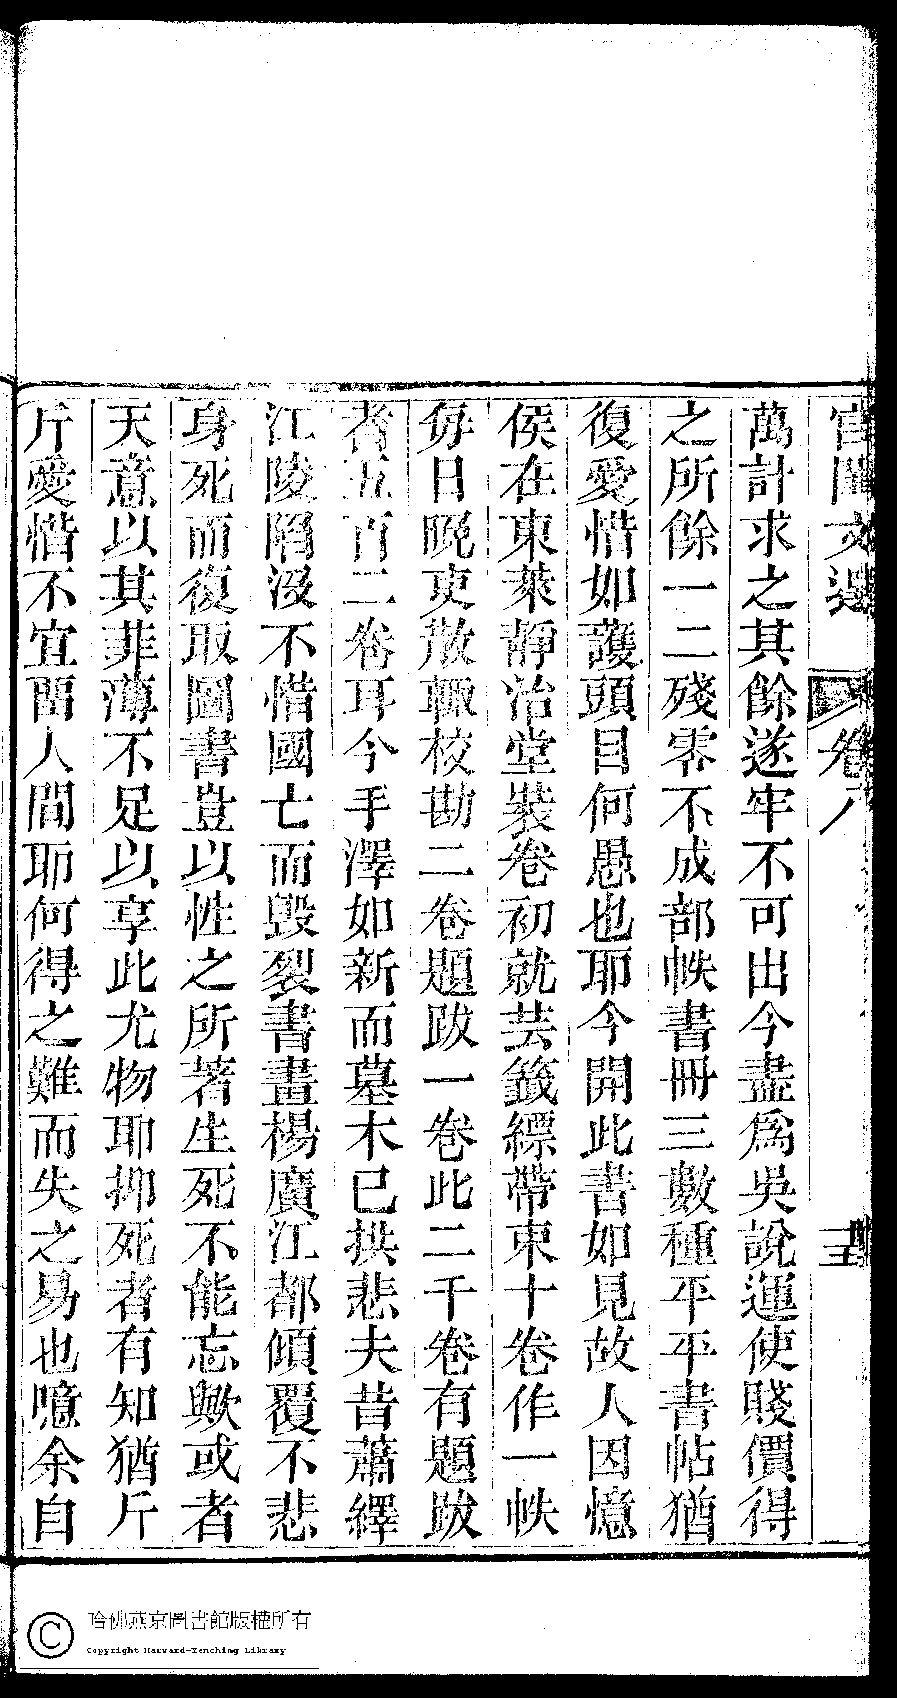 宮閨文選 卷八 十五
萬計求之其餘遂牢不可出今盡爲吳說運使賤價得
之所餘一二殘零不成部帙書冊三數種平平書帖猶
復愛惜如護頭目何愚也耶今開此書如見故人因憶
侯在東萊靜治堂裝卷初就芸籤縹帶束十卷作一帙
每日晚吏散輒校勘二卷題跋一卷此二千卷有題跋
者五百二卷耳今手澤如新而墓木已拱悲夫昔蕭繹
江陵陷沒不惜國亡而毀裂書畫楊廣江都傾覆不悲
身死而復取圖書豈以性之所著生死不能忘歟或者
天意以其菲薄不足以享此尤物耶抑死者有知猶斤
斤愛惜不宜畱人間耶何得之難而失之易也噫余自
哈佛燕京圖書館版權所有
Copyright Harvard-Yenching Library